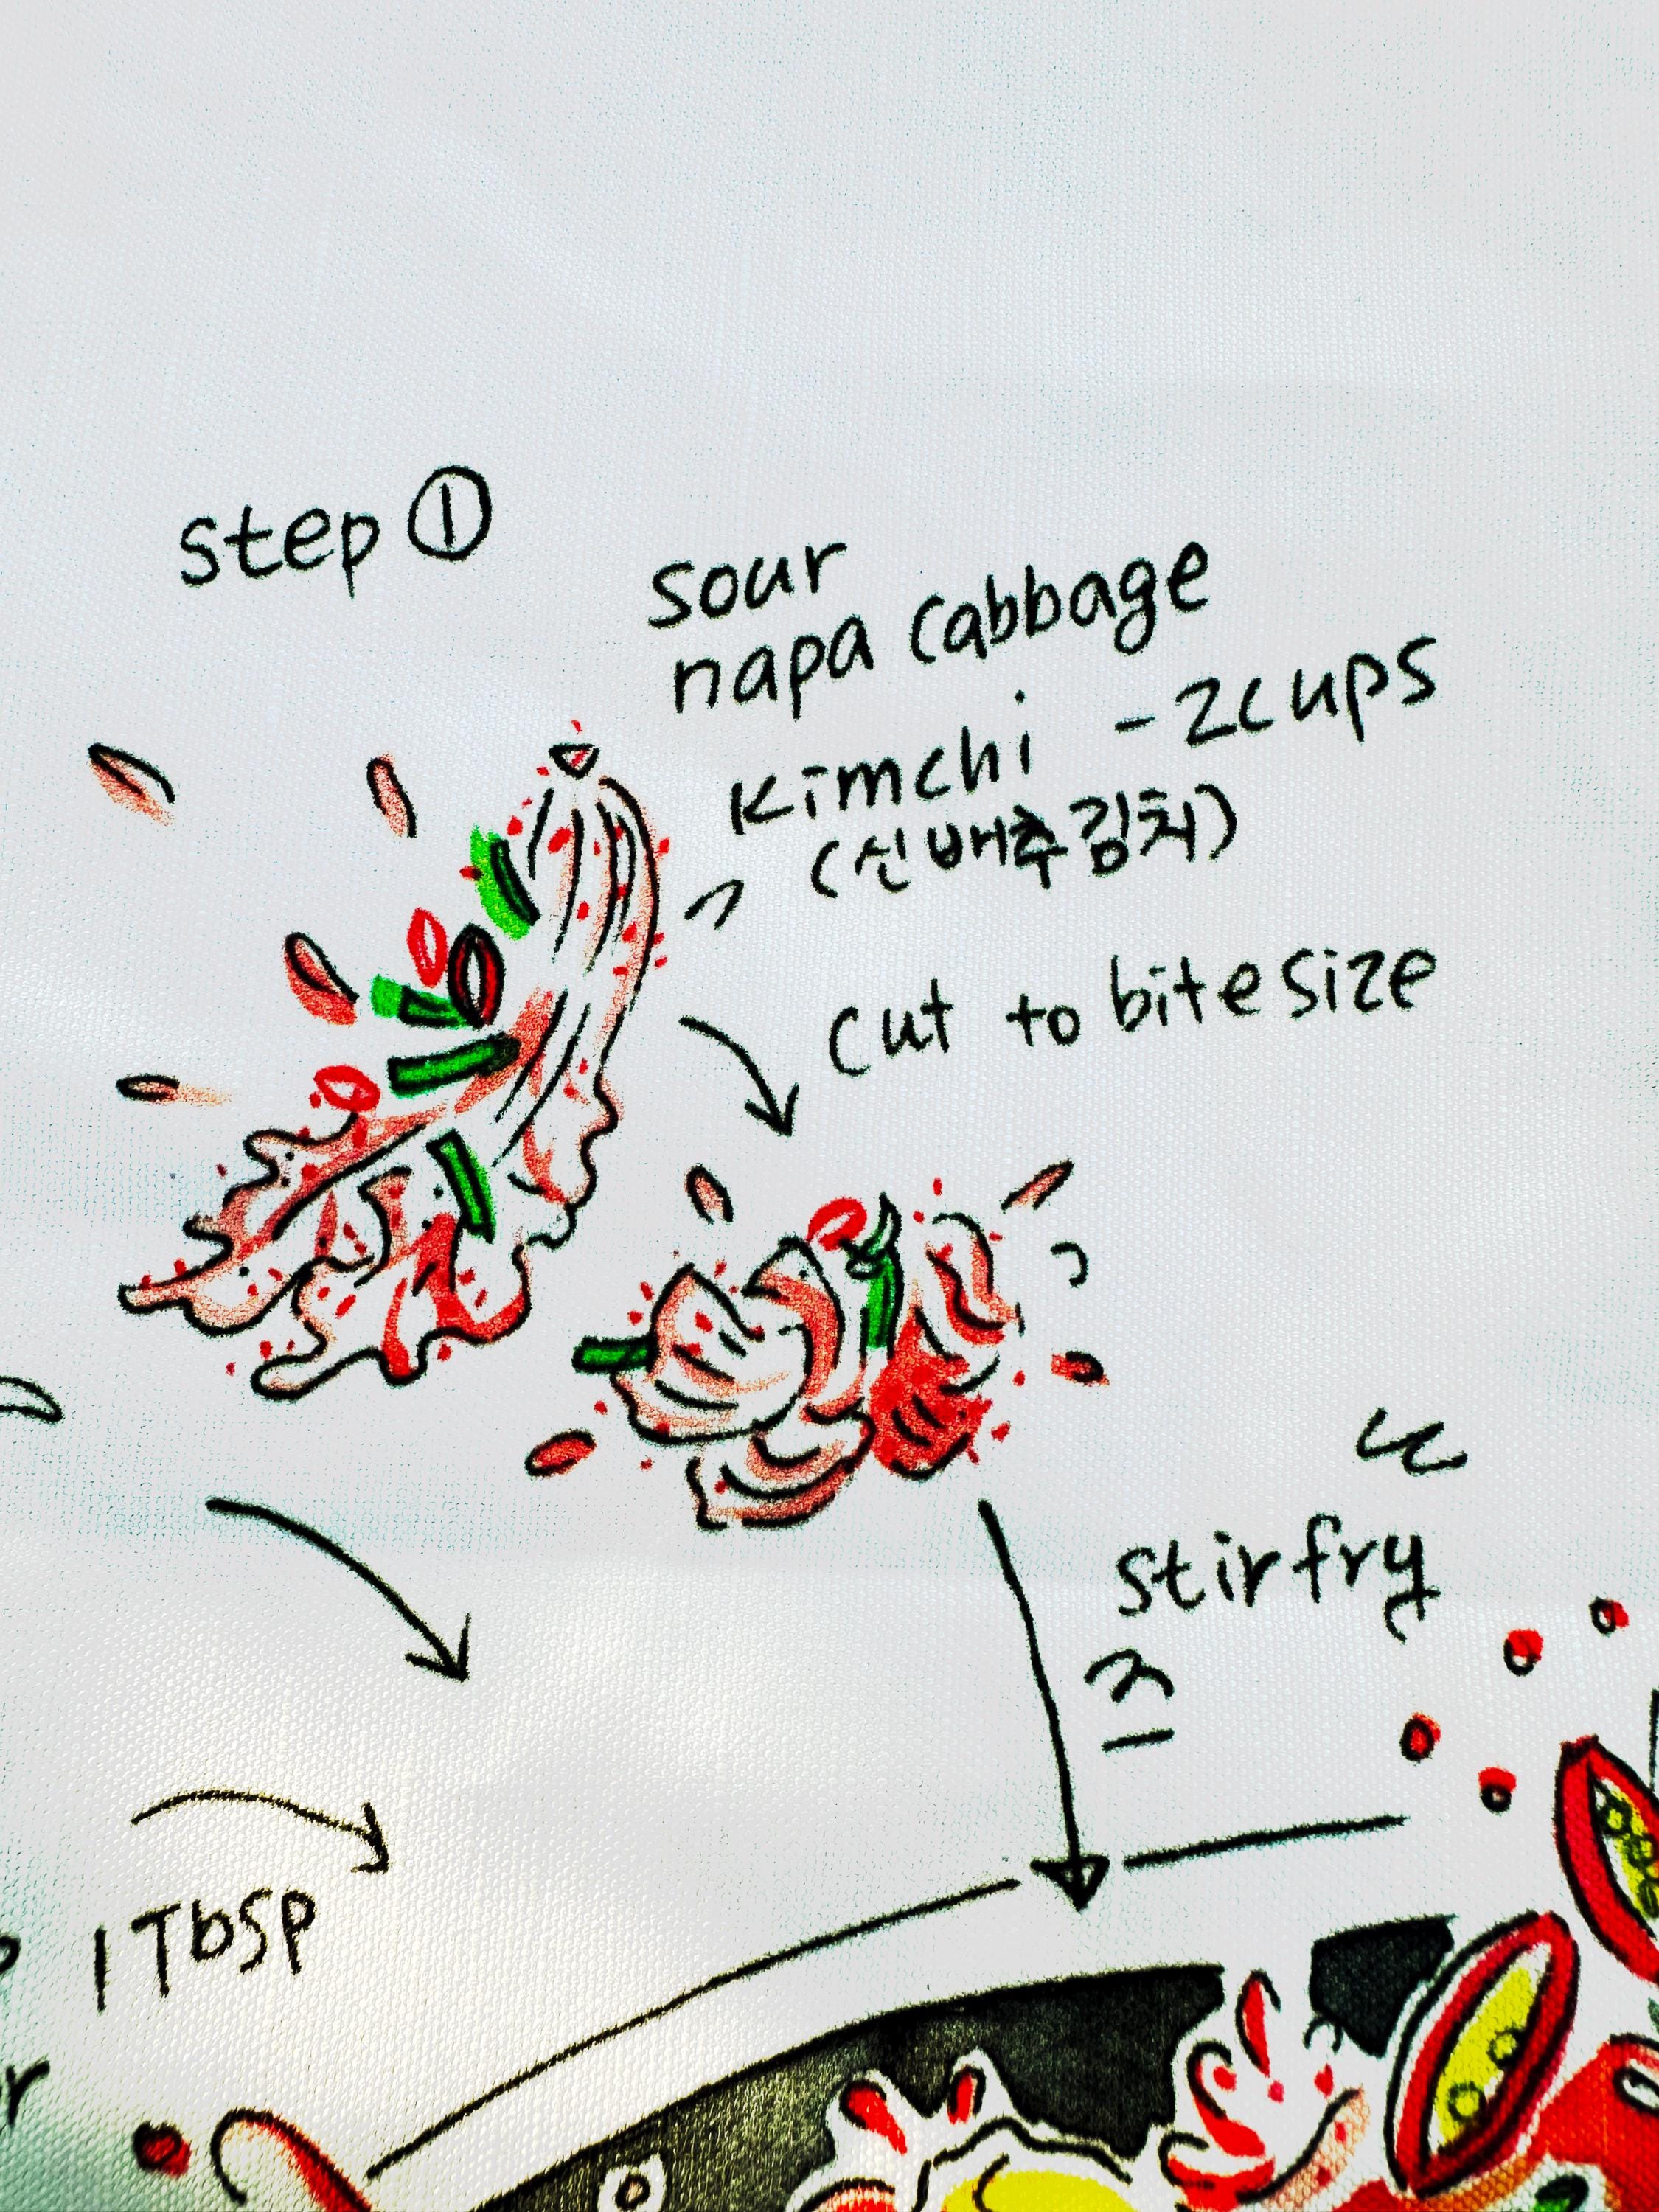 step ①
sour
napa cabbage
kimchi - 2cups
(신배추김치)
cut to bite size
stir fry
1 Tbsp